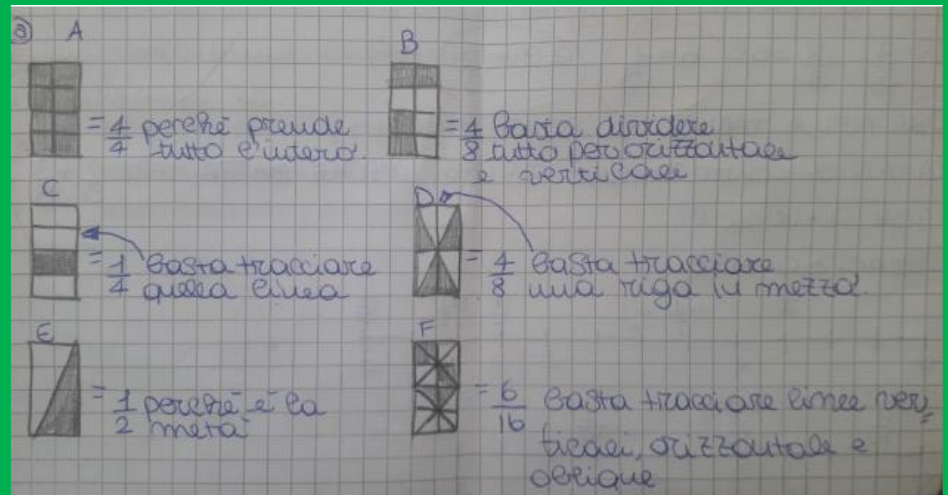 a) A
B
= 4/4 perché prende
tutto l'intero.
= 4/8 Basta dividere
tutto per orizzontale
e verticale
C
D
= 1/4 Basta tracciare
quella linea
= 4/8 Basta tracciare
una riga in mezzo.
E
F
= 1/2 perché è la
metà
= 6/16 Basta tracciare linee ver-
ticali, orizzontale e
oblique